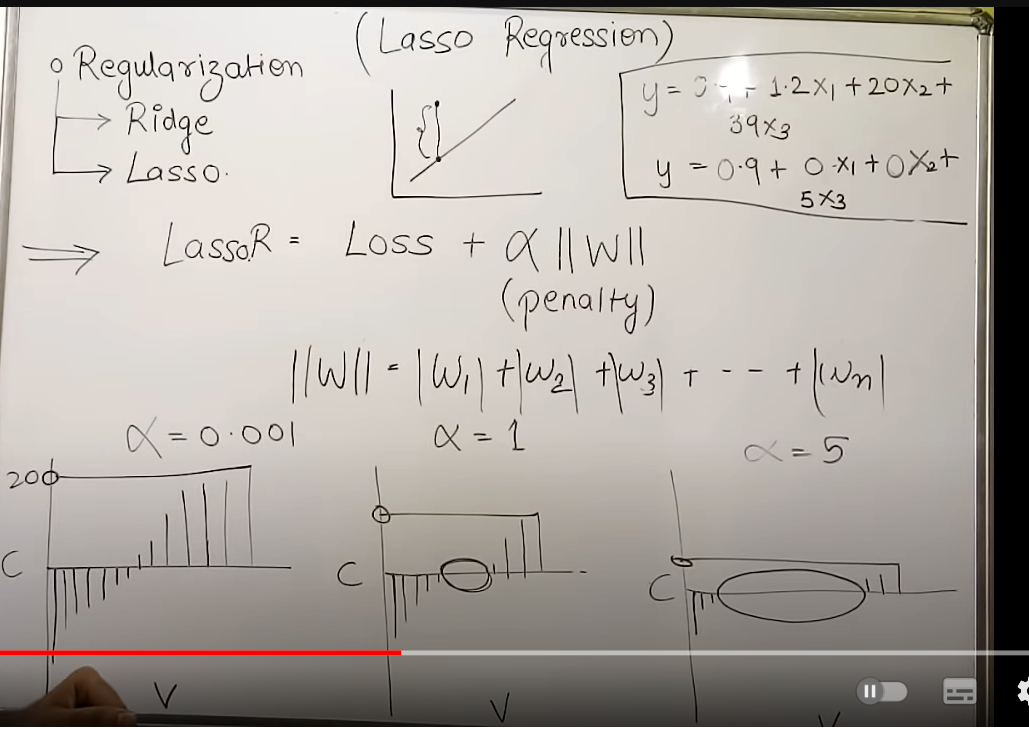 (Lasso Regression)
o Regularization
→ Ridge
→ Lasso.
1.2x₁ + 20x₂ +
39x₃
y = 0.9 + 0.x₁ + 0x₂ +
5x₃
⇒ LassoR = Loss + α ||W||
(penalty)
||W|| = |W₁| + |W₂| + |W₃| + - - + |Wn|
α = 0.001
α = 1
α = 5
200
C
C
C
V
V